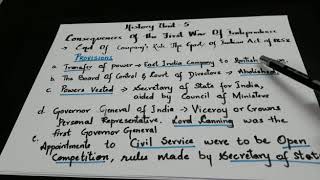 History Unit 5
Consequences Of the First War Of Independence
→ End Of Company's Rule The Govt of Indian Act of 1858
Provisions
a. Transfer of power → East India Company to British
b. The Board Of Control & Court of Directors → Abolished
c. Powers Vested → Secretary of State for India,
aided by Council of Ministers
d. Governor General of India → Viceroy or Crowns
Personal Representative. Lord Canning was the
first Governor General
e. Appointments to Civil Service were to be Open
Competition, rules made by Secretary of State